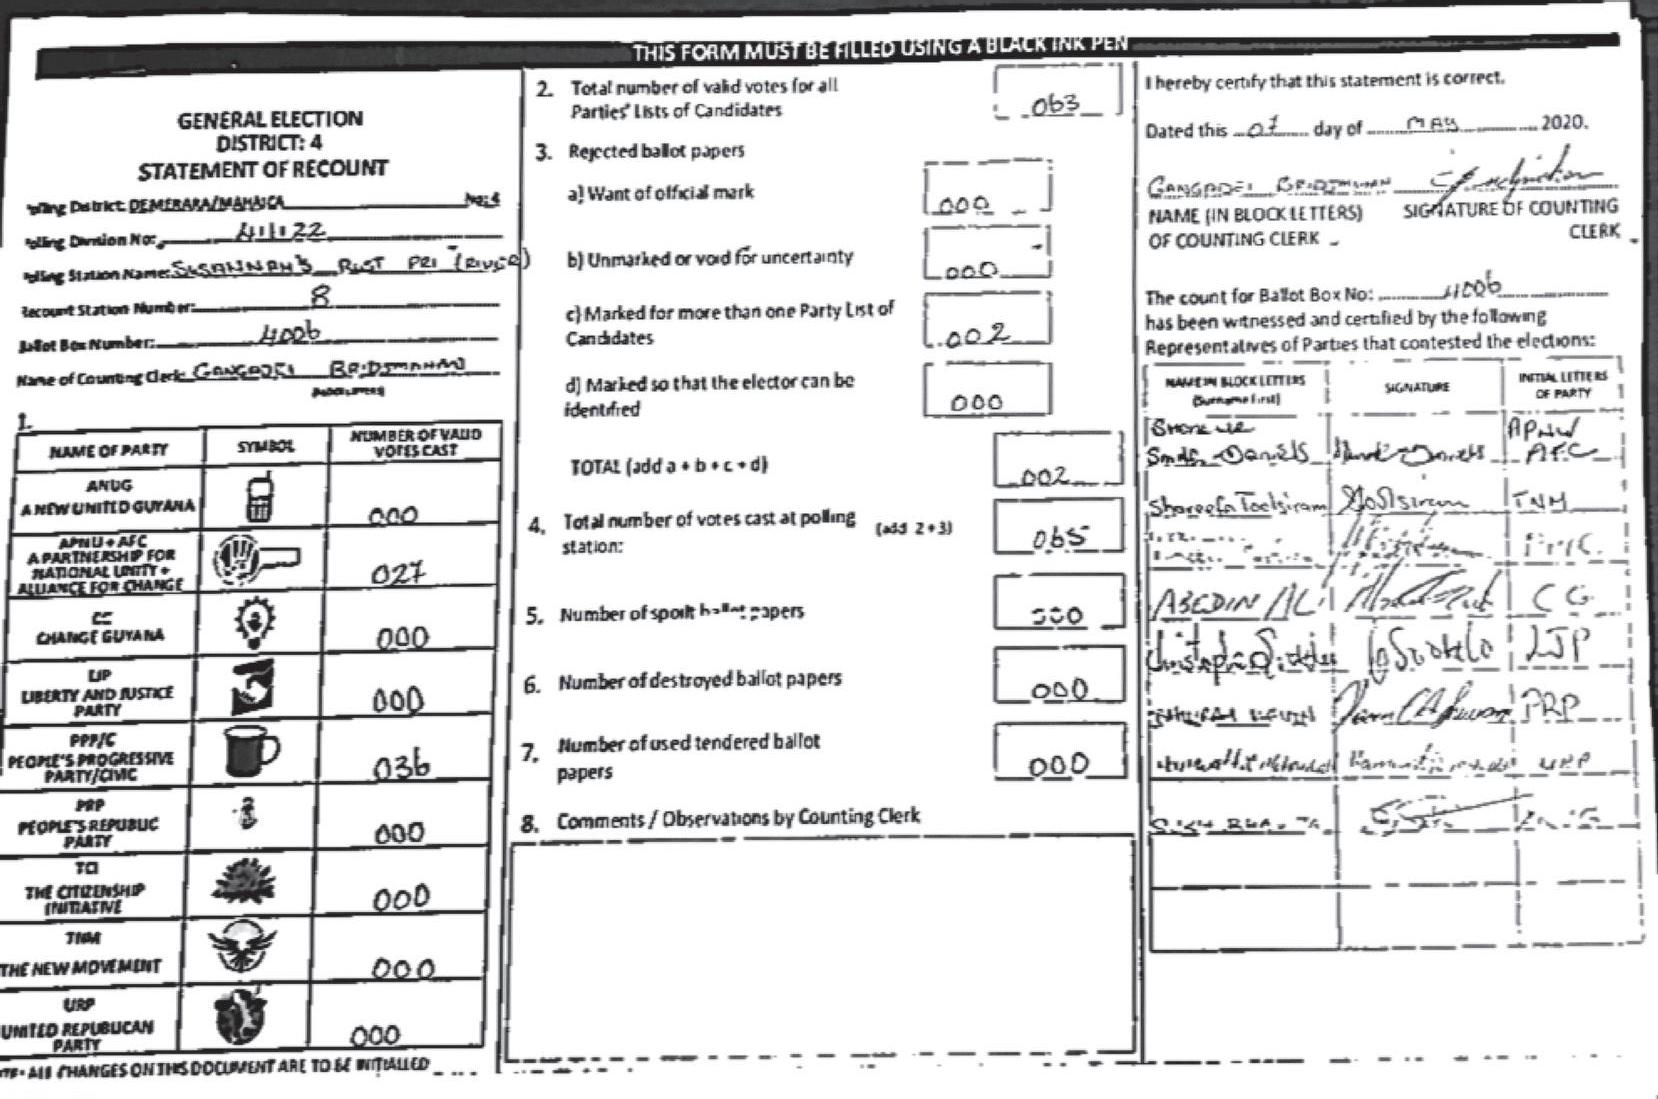 THIS FORM MUST BE FILLED USING A BLACK INK PEN
GENERAL ELECTION
DISTRICT: 4
STATEMENT OF RECOUNT
olling District: DEMERARA/MAHAICA No: 4
olling Division No: 411122
olling Station Name: SUSANNAH'S RUST PRI (RIVER)
Recount Station Number: 8
Ballot Box Number: 4006
Name of Counting Clerk: GANGADEI BRIDJMOHAN
(BLOCK LETTERS)
1.
NAME OF PARTY SYMBOL NUMBER OF VALID VOTES CAST
ANUG
A NEW UNITED GUYANA 000
APNU + AFC
A PARTNERSHIP FOR
NATIONAL UNITY +
ALLIANCE FOR CHANGE 027
CG
CHANGE GUYANA 000
LJP
LIBERTY AND JUSTICE
PARTY 000
PPP/C
PEOPLE'S PROGRESSIVE
PARTY/CIVIC 036
PRP
PEOPLE'S REPUBLIC
PARTY 000
TCI
THE CITIZENSHIP
INITIATIVE 000
TNM
THE NEW MOVEMENT 000
URP
UNITED REPUBLICAN
PARTY 000
OTE: ALL CHANGES ON THIS DOCUMENT ARE TO BE INITIALLED
2. Total number of valid votes for all
Parties' Lists of Candidates 063
3. Rejected ballot papers
a) Want of official mark 000
b) Unmarked or void for uncertainty 000
c) Marked for more than one Party List of
Candidates 002
d) Marked so that the elector can be
identified 000
TOTAL (add a + b + c + d) 002
4. Total number of votes cast at polling
station: (add 2+3) 065
5. Number of spoilt ballot papers 000
6. Number of destroyed ballot papers 000
7. Number of used tendered ballot
papers 000
8. Comments / Observations by Counting Clerk
I hereby certify that this statement is correct.
Dated this 07 day of MAY 2020.
GANGADEI BRIDJMOHAN
NAME (IN BLOCK LETTERS) SIGNATURE OF COUNTING
OF COUNTING CLERK CLERK
The count for Ballot Box No: 4006
has been witnessed and certified by the following
Representatives of Parties that contested the elections:
NAME IN BLOCK LETTERS SIGNATURE INITIAL LETTERS
(Surname First) OF PARTY
APNU
Daniels Daniels AFC
Shareefa Toolsiram TNM
ABEDIN CG
LJP
PRP
URP